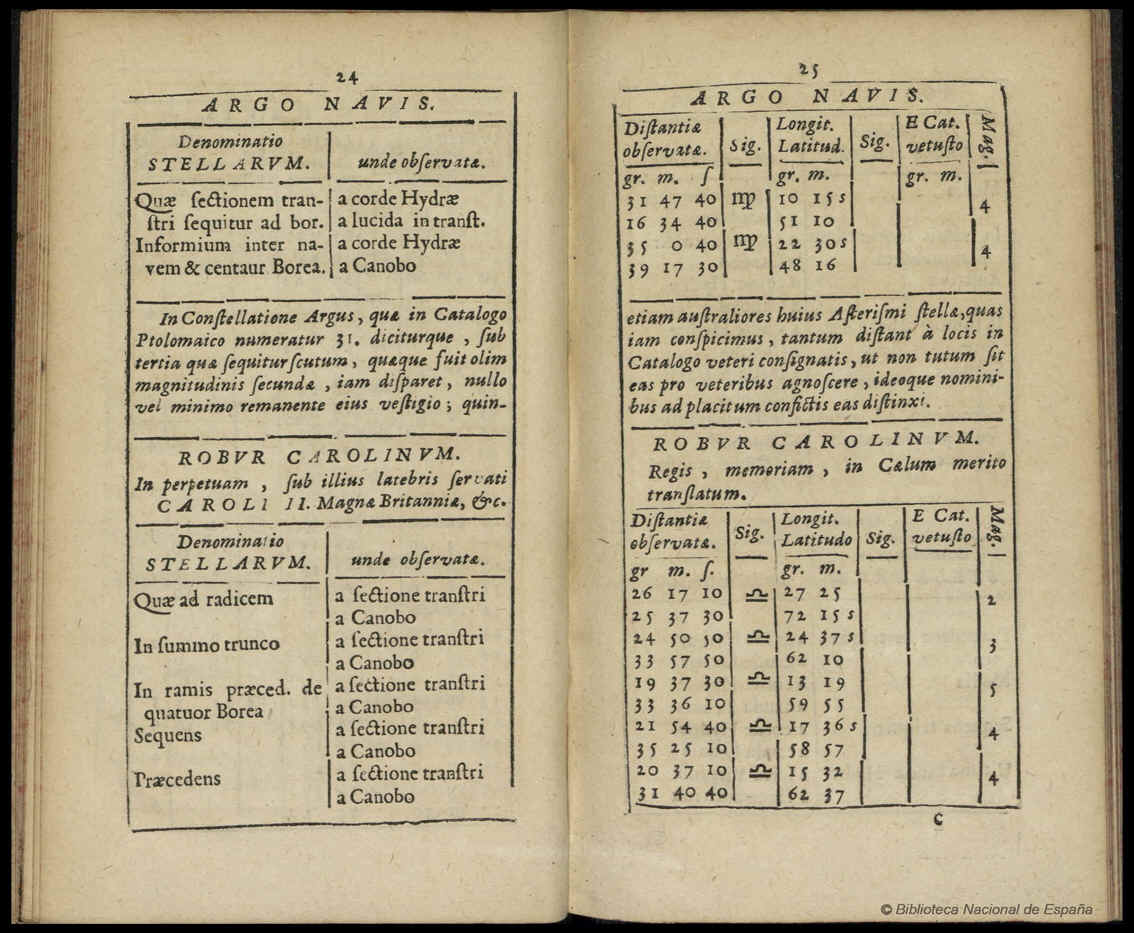 24
ARGO NAVIS.
Denominatio
STELLARVM. unde observatæ.
Quæ sectionem tran- a corde Hydræ
stri sequitur ad bor. a lucida in transt.
Informium inter na- a corde Hydræ
vem & centaur Borea. a Canobo
In Constellatione Argus, quæ in Catalogo
Ptolomaico numeratur 31. diciturque, sub
tertia quæ sequitur scutum, quæque fuit olim
magnitudinis secundæ, iam disparet, nullo
vel minimo remanente eius vestigio; quin-
ROBVR CAROLINVM.
In perpetuam, sub illius latebris servati
CAROLI II. Magnæ Britanniæ, &c.
Denominatio
STELLARVM. unde observatæ.
Quæ ad radicem a sectione transtri
a Canobo
In summo trunco a sectione transtri
a Canobo
In ramis præced. de a sectione transtri
quatuor Borea a Canobo
Sequens a sectione transtri
a Canobo
Præcedens a sectione transtri
a Canobo
25
ARGO NAVIS.
Distantiæ Sig. Longit. Sig. E Cat. Mag.
observatæ. Latitud. vetusto
gr. m. s gr. m. gr. m.
31 47 40 ♍ 10 15 s 4
16 34 40 51 10
35 0 40 ♍ 22 30 s 4
39 17 30 48 16
etiam australiores huius Asterismi stellæ, quas
iam conspicimus, tantum distant à locis in
Catalogo veteri consignatis, ut non tutum sit
eas pro veteribus agnoscere, ideoque nomini-
bus ad placitum confictis eas distinxi.
ROBVR CAROLINVM.
Regis, memoriam, in Cælum merito
translatum.
Distantiæ Sig. Longit. Sig. E Cat. Mag.
observatæ. Latitudo vetusto
gr m. s. gr. m.
26 17 10 ♎ 27 25 2
25 37 30 72 15 s
24 50 50 ♎ 24 37 s 3
33 57 50 62 10
19 37 30 ♎ 13 19 5
33 36 10 59 55
21 54 40 ♎ 17 36 s 4
35 25 10 58 57
20 37 10 ♎ 15 32 4
31 40 40 62 37
C
© Biblioteca Nacional de España